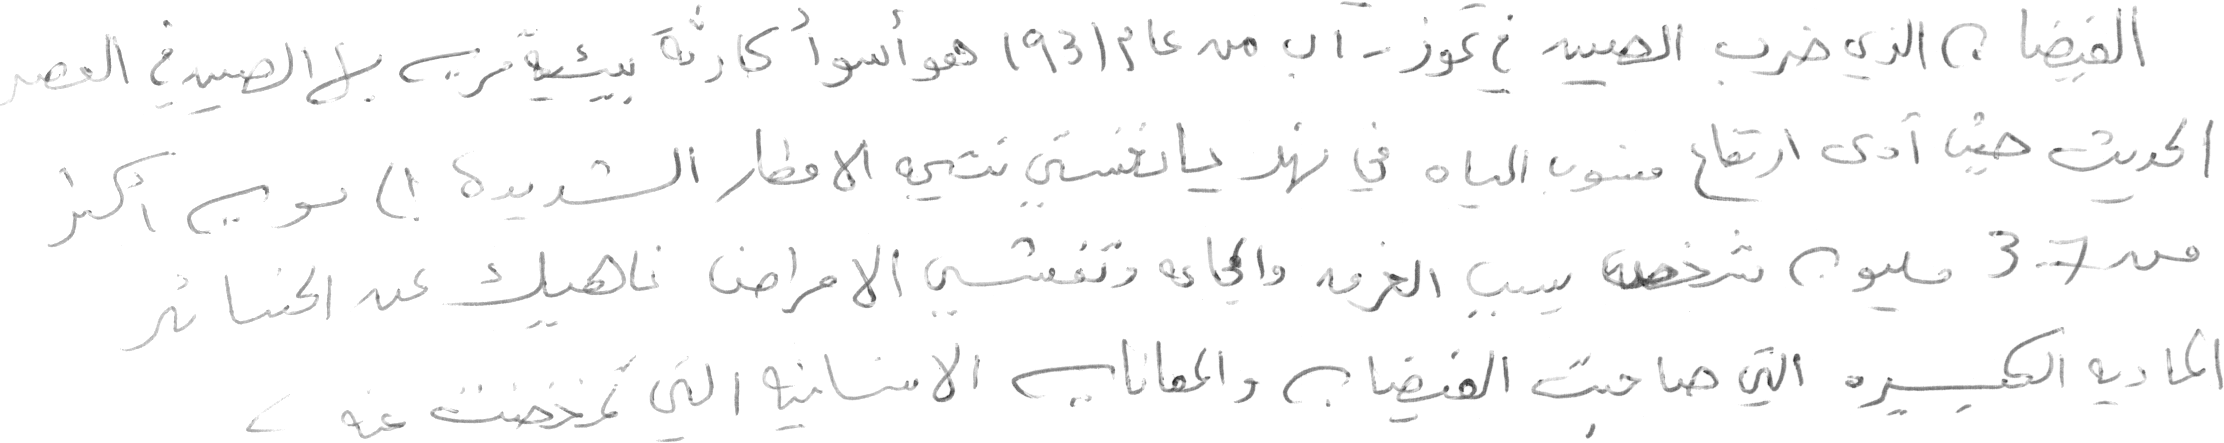 الفيضان الذي ضرب الصين في تموز - آب من عام 1931 هو أسوأ كارثة بيئية مرت بلا الصين في العصر
الحديث حيث أدى ارتفاع منسوب المياه في نهر يانغستي نتيجه الامطار الشديدة الى موت أكثر
من 3.7 مليون شخص بسبب الغرق والمجاعه وتفشي الامراض ناهيك عن الخسائر
الماديه الكبيره التي صاحبت الفيضان والمعانات الانسانيه التي تمخضت عنه